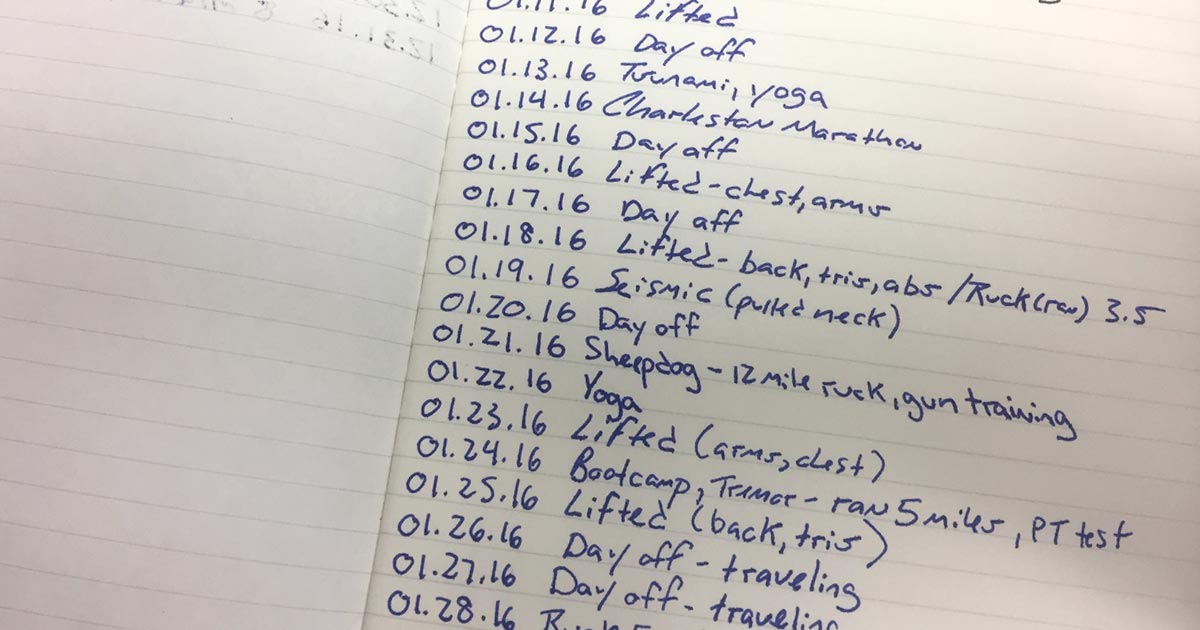 01.11.16 Lifted
01.12.16 Day off
01.13.16 Tsunami, yoga
01.14.16 Charleston Marathon
01.15.16 Day off
01.16.16 Lifted - chest, arms
01.17.16 Day off
01.18.16 Lifted - back, tris, abs / Ruck (ran) 3.5
01.19.16 Seismic (pulled neck)
01.20.16 Day off
01.21.16 Sheepdog - 12 mile ruck, gun training
01.22.16 Yoga
01.23.16 Lifted (arms, chest)
01.24.16 Bootcamp, Tremor - ran 5 miles, PT test
01.25.16 Lifted (back, tris)
01.26.16 Day off - traveling
01.27.16 Day off - traveling
01.28.16
12.31.16